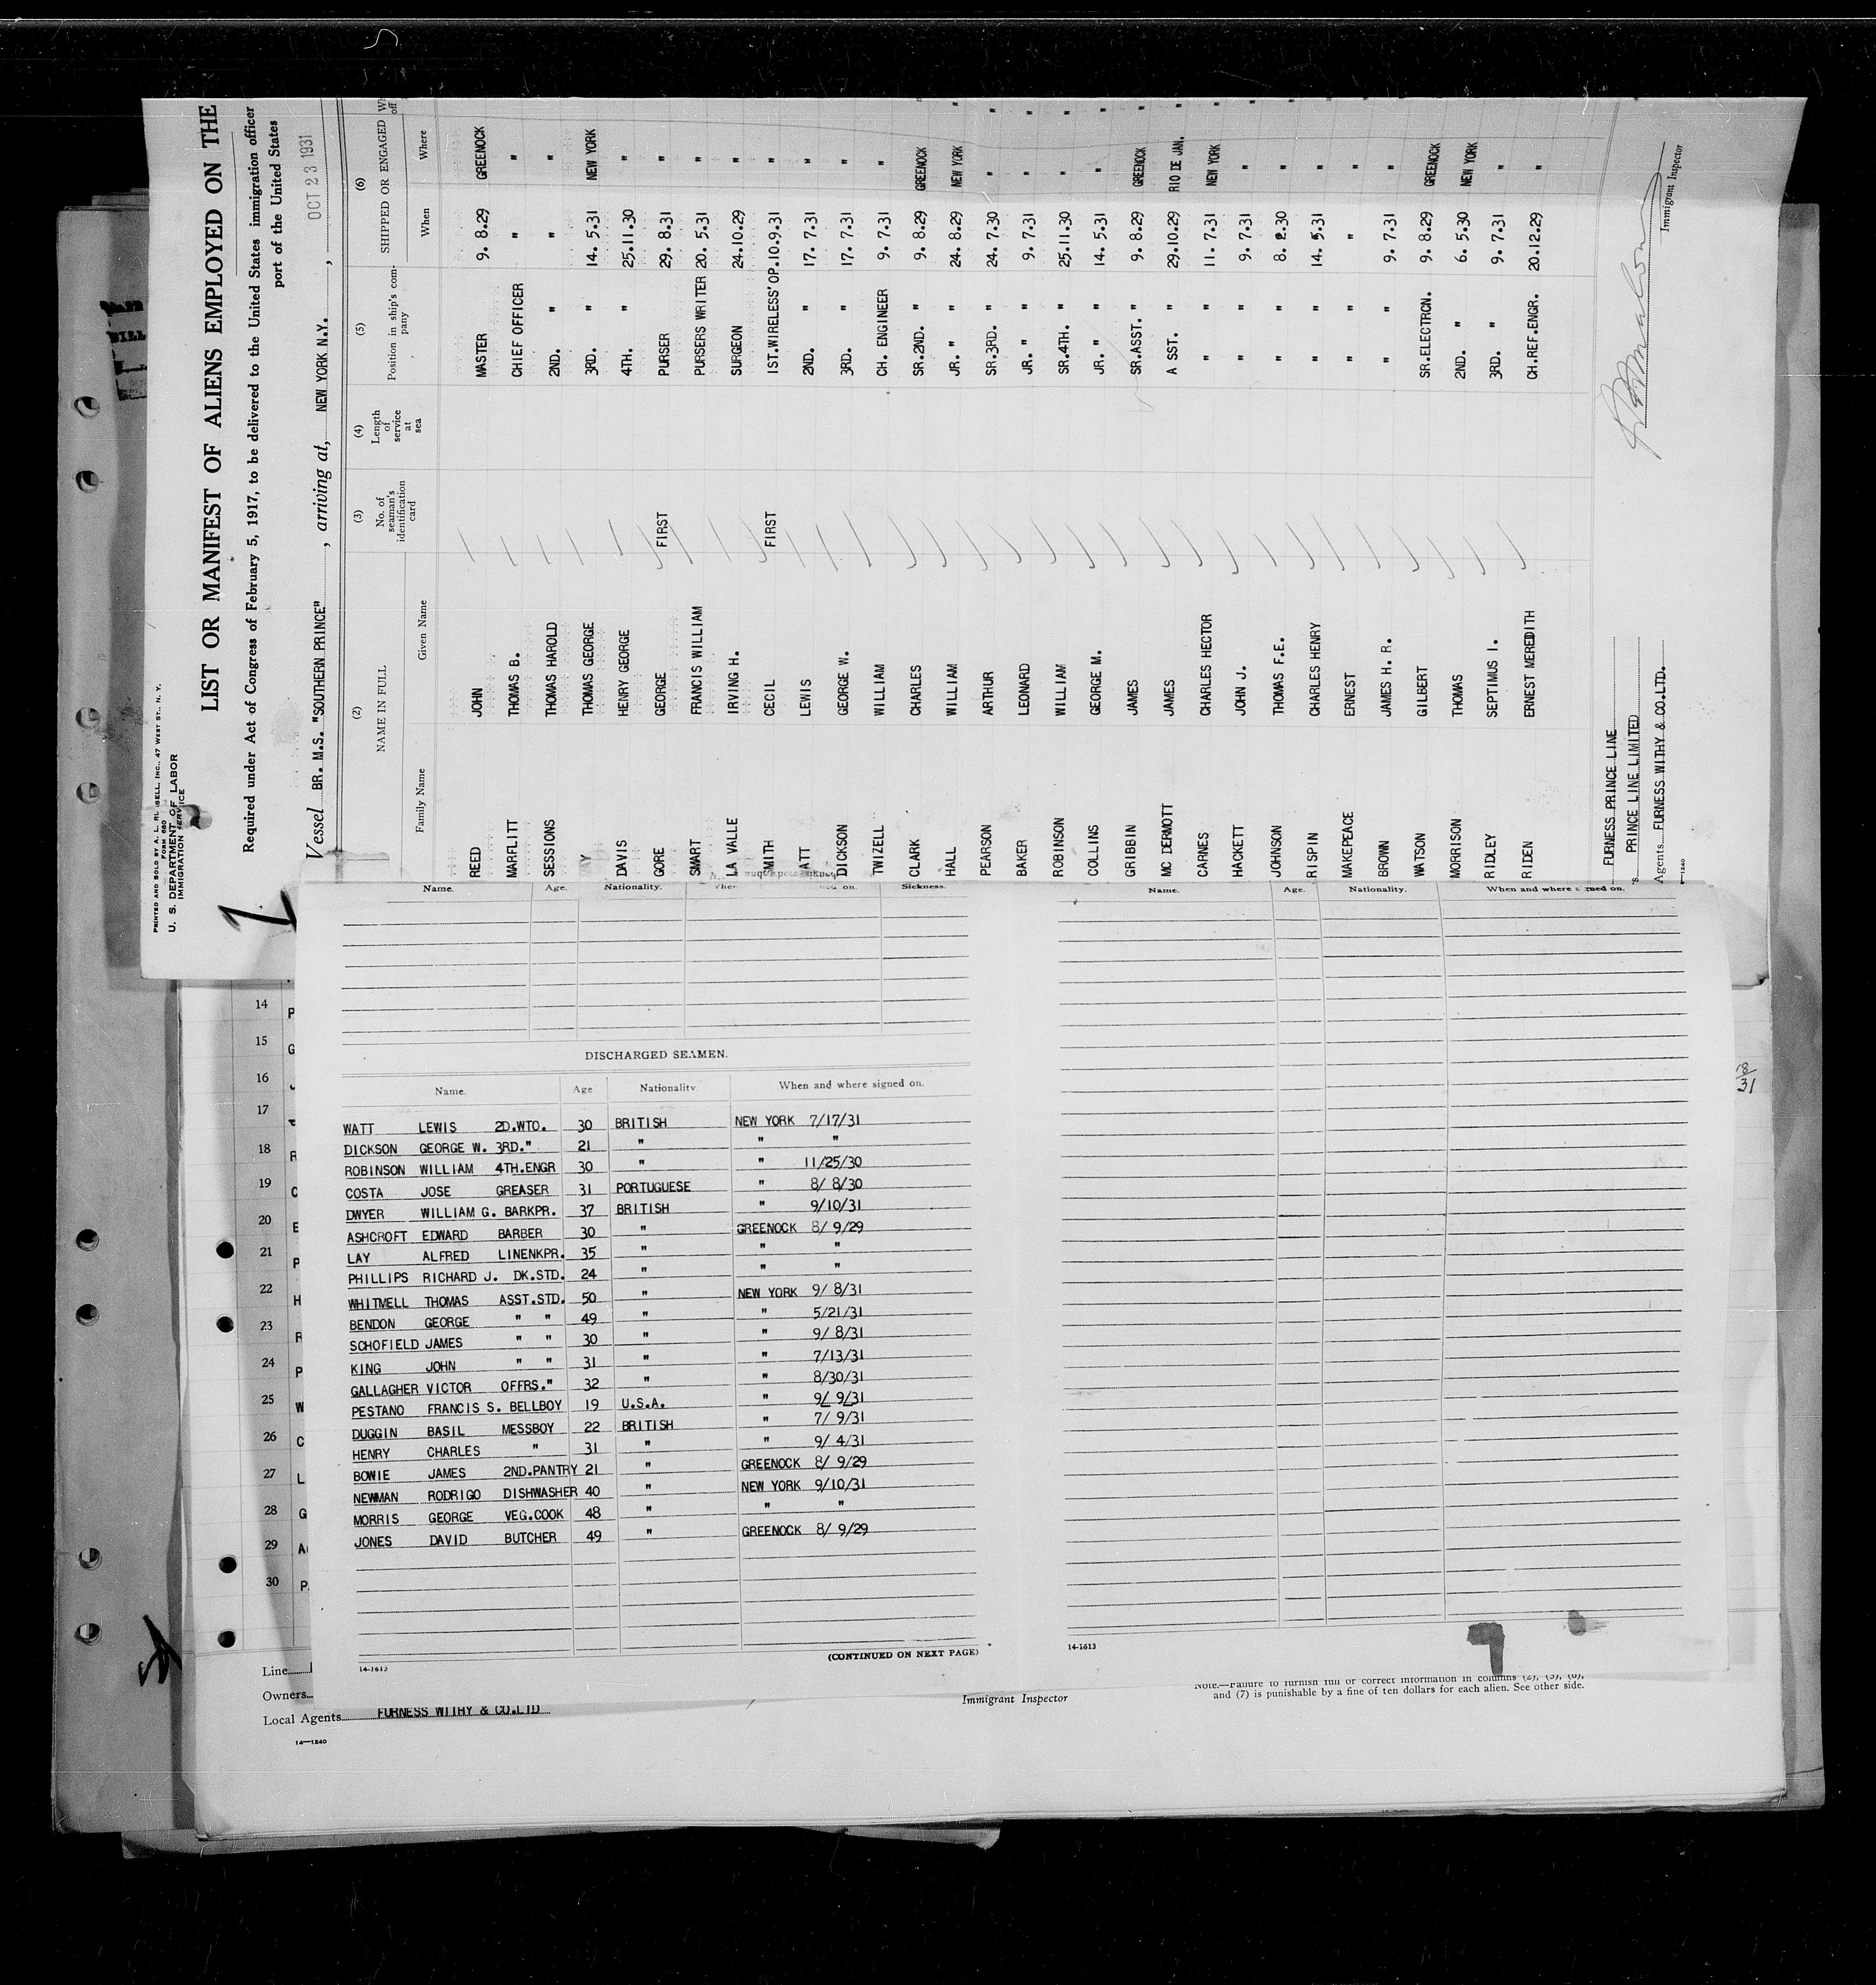 PRINTED AND SOLD BY A. L. RUSSELL, INC., 47 WEST ST., N. Y.
FORM 680
U. S. DEPARTMENT OF LABOR
IMMIGRATION SERVICE
LIST OR MANIFEST OF ALIENS EMPLOYED ON THE
Required under Act of Congress of February 5, 1917, to be delivered to the United States immigration officer
port of the United States
Vessel BR. M.S. "SOUTHERN PRINCE", arriving at, NEW YORK N.Y., OCT 23 1931
(2) (3) (4) (5) (6)
NAME IN FULL No. of seaman's identification card Length of service at sea Position in ship's company SHIPPED OR ENGAGED
Family Name Given Name When Where
REED JOHN MASTER 9. 8.29 GREENOCK
MARFLITT THOMAS B. CHIEF OFFICER " "
SESSIONS THOMAS HAROLD 2ND. " " "
THOMAS GEORGE 3RD. " 14. 5.31 NEW YORK
DAVIS HENRY GEORGE 4TH. " 25.11.30 "
GORE GEORGE FIRST PURSER 29. 8.31 "
SMART FRANCIS WILLIAM PURSERS WRITER 20. 5.31 "
LA VALLE IRVING H. SURGEON 24.10.29 "
SMITH CECIL FIRST 1ST.WIRELESS'OP. 10.9.31 "
WATT LEWIS 2ND. " 17. 7.31 "
DICKSON GEORGE W. 3RD. " 17. 7.31 "
TWIZELL WILLIAM CH. ENGINEER 9. 7.31 "
CLARK CHARLES SR.2ND. " 9. 8.29 GREENOCK
HALL WILLIAM JR. " " 24. 8.29 NEW YORK
PEARSON ARTHUR SR.3RD. " 24. 7.30 "
BAKER LEONARD JR. " " 9. 7.31 "
ROBINSON WILLIAM SR.4TH. " 25.11.30 "
COLLINS GEORGE M. JR. " " 14. 5.31 "
GRIBBIN JAMES SR.ASST. " 9. 8.29 GREENOCK
MC DERMOTT JAMES A SST. " 29.10.29 RIO DE JAN.
CARNES CHARLES HECTOR " " 11. 7.31 NEW YORK
HACKETT JOHN J. " " 9. 7.31 "
JOHNSON THOMAS F.E. " " 8. 2.30 "
RISPIN CHARLES HENRY " " 14. 5.31 "
MAKEPEACE ERNEST " " " "
BROWN JAMES H. R. " " 9. 7.31 "
WATSON GILBERT SR.ELECTRCN. 9. 8.29 GREENOCK
MORRISON THOMAS 2ND. " 6. 5.30 NEW YORK
RIDLEY SEPTIMUS I. 3RD. " 9. 7.31 "
RIDEN ERNEST MEREDITH CH.REF.ENGR. 20.12.29 "
FURNESS PRINCE LINE
PRINCE LINE LIMITED
Agents FURNESS WITHY & CO.LTD.
Immigrant Inspector
Name. Age. Nationality. on. Sickness.
Name. Age. Nationality. When and where signed on.
DISCHARGED SEAMEN.
Name. Age Nationality When and where signed on.
WATT LEWIS 2D.WTO. 30 BRITISH NEW YORK 7/17/31
DICKSON GEORGE W. 3RD." 21 " " "
ROBINSON WILLIAM 4TH.ENGR 30 " " 11/25/30
COSTA JOSE GREASER 31 PORTUGUESE " 8/ 8/30
DWYER WILLIAM G. BARKPR. 37 BRITISH " 9/10/31
ASHCROFT EDWARD BARBER 30 " GREENOCK 8/ 9/29
LAY ALFRED LINENKPR. 35 " " "
PHILLIPS RICHARD J. DK.STD. 24 " " "
WHITWELL THOMAS ASST.STD. 50 " NEW YORK 9/ 8/31
BENDON GEORGE " " 49 " " 5/21/31
SCHOFIELD JAMES " " 30 " " 9/ 8/31
KING JOHN " " 31 " " 7/13/31
GALLAGHER VICTOR OFFRS." 32 " " 8/30/31
PESTANO FRANCIS S. BELLBOY 19 U.S.A. " 9/ 9/31
DUGGIN BASIL MESSBOY 22 BRITISH " 7/ 9/31
HENRY CHARLES " 31 " " 9/ 4/31
BOWIE JAMES 2ND.PANTRY 21 " GREENOCK 8/ 9/29
NEWMAN RODRIGO DISHWASHER 40 " NEW YORK 9/10/31
MORRIS GEORGE VEG.COOK 48 " " "
JONES DAVID BUTCHER 49 " GREENOCK 8/ 9/29
(CONTINUED ON NEXT PAGE)
14-1613
14-1613
14 P
15 G
16
17
18 R
19 C
20 E
21 P
22 H
23 R
24 P
25 W
26 C
27 L
28 G
29 A
30 P
18/31
Line
Owners
Local Agents FURNESS WITHY & CO.LTD
14—1240
Immigrant Inspector
Note.—Failure to furnish full or correct information in columns (2), (5), (6),
and (7) is punishable by a fine of ten dollars for each alien. See other side.